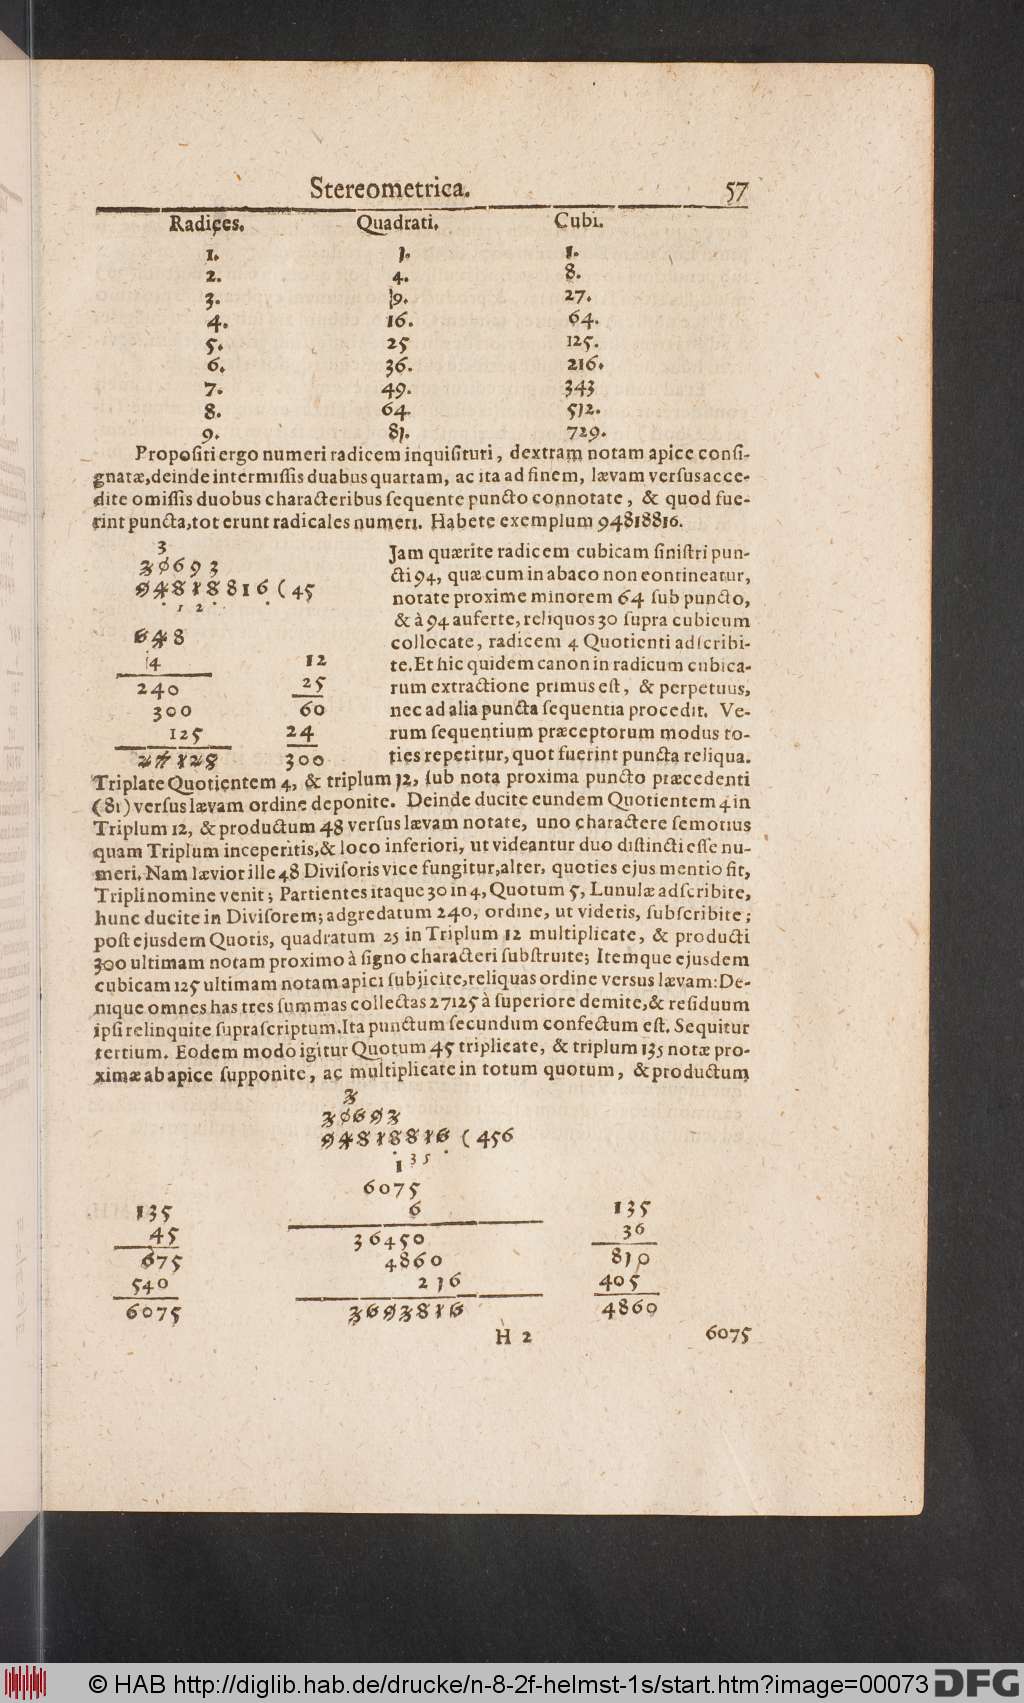 Stereometrica. 57
Radices. Quadrati. Cubi.
1. 1. 1.
2. 4. 8.
3. 9. 27.
4. 16. 64.
5. 25 125.
6. 36. 216.
7. 49. 343
8. 64. 512.
9. 81. 729.
Propositi ergo numeri radicem inquisituri, dextram notam apice consi-
gnatæ, deinde intermissis duabus quartam, ac ita ad finem, lævam versus acce-
dite omissis duobus characteribus sequente puncto connotate, & quod fue-
rint puncta, tot erunt radicales numeri. Habete exemplum 94818816.
3
30693
94818816 (45
. 1 2 . .
648
4 12
240 25
300 60
125 24
27125 300
Jam quærite radicem cubicam sinistri pun-
cti 94, quæ cum in abaco non eontineatur,
notate proxime minorem 64 sub puncto,
& à 94 auferte, reliquos 30 supra cubicum
collocate, radicem 4 Quotienti adscribi-
te. Et hic quidem canon in radicum cubica-
rum extractione primus est, & perpetuus,
nec ad alia puncta sequentia procedit. Ve-
rum sequentium præceptorum modus to-
ties repetitur, quot fuerint puncta reliqua.
Triplate Quotientem 4, & triplum 12, sub nota proxima puncto præcedenti
(81) versus lævam ordine deponite. Deinde ducite eundem Quotientem 4 in
Triplum 12, & productum 48 versus lævam notate, uno charactere semotius
quam Triplum inceperitis, & loco inferiori, ut videantur duo distincti esse nu-
meri. Nam lævior ille 48 Divisoris vice fungitur, alter, quoties ejus mentio fit,
Tripli nomine venit; Partientes itaque 30 in 4, Quotum 5, Lunulæ adscribite,
hunc ducite in Divisorem; adgredatum 240, ordine, ut videtis, subscribite;
post ejusdem Quotis, quadratum 25 in Triplum 12 multiplicate, & producti
300 ultimam notam proximo à signo characteri substruite; Itemque ejusdem
cubicam 125 ultimam notam apici subjicite, reliquas ordine versus lævam: De-
nique omnes has tres summas collectas 27125 à superiore demite, & residuum
ipsi relinquite suprascriptum. Ita punctum secundum confectum est. Sequitur
tertium. Eodem modo igitur Quotum 45 triplicate, & triplum 135 notæ pro-
ximæ ab apice supponite, ac multiplicate in totum quotum, & productum
3
30693
94818816 (456
. 1 3 5 .
6075
135 6 135
45 36450 36
675 4860 810
540 216 405
6075 3693816 4860
H 2 6075
© HAB http://diglib.hab.de/drucke/n-8-2f-helmst-1s/start.htm?image=00073 DFG